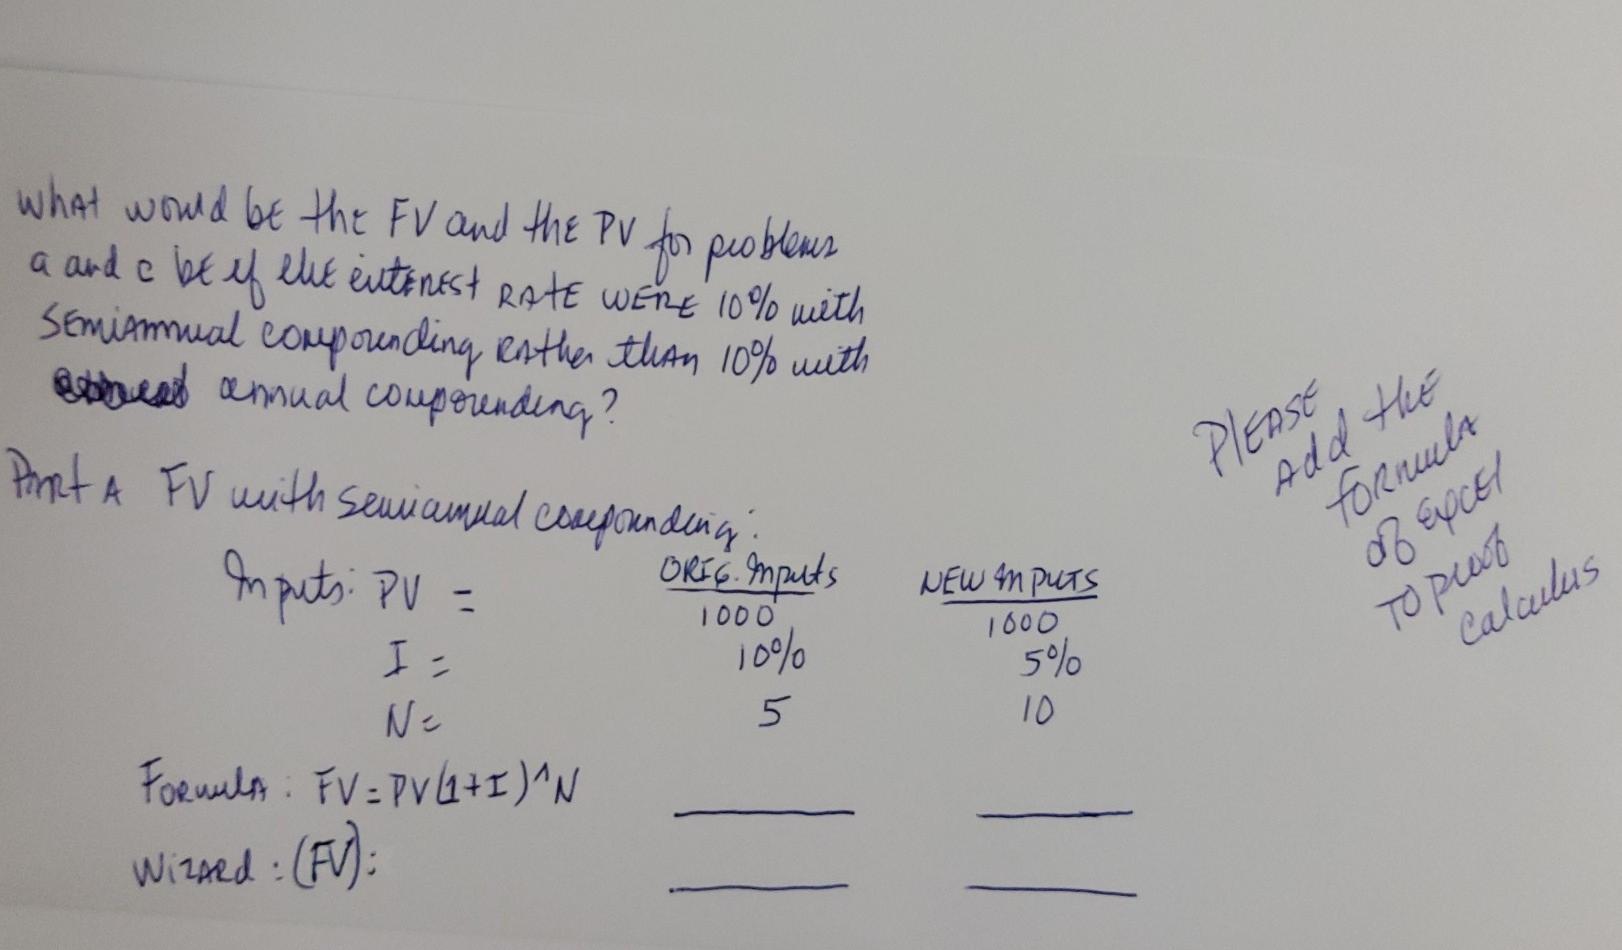 What would be the FV and the PV for problems
a and c be if the interest RATE WERE 10% with
SEMIAnnual compounding RAther thAn 10% with
annual compounding?
Part A FV with Semiannual compounding:
Inputs: PV = 
ORIG. Inputs
1000
NEW INPUTS
1000
I = 10% 5%
N= 5 10
FormulA: FV=PV(1+I)^N
WizARd: (FV):
PlEASE
Add the
FORmulA
of Excel
TO proof
Calculus